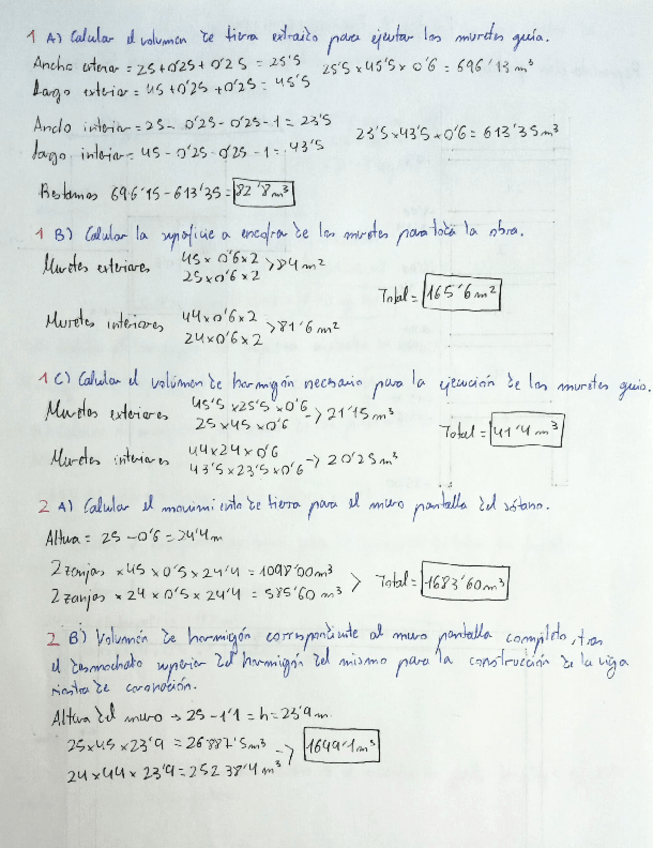 1 A) Calcular el volumen de tierra extraido para ejecutar los muretes guía.
Ancho exterior = 25 + 0'25 + 0'25 = 25'5 25'5 x 45'5 x 0'6 = 696'15 m³
Largo exterior = 45 + 0'25 + 0'25 = 45'5
Ancho interior = 25 - 0'25 - 0'25 - 1 = 23'5 23'5 x 43'5 x 0'6 = 613'35 m³
Largo interior = 45 - 0'25 - 0'25 - 1 = 43'5
Restamos 696'15 - 613'35 = 82'8 m³
1 B) Calcular la superficie a encofrar de los muretes para toda la obra.
Muretes exteriores 45 x 0'6 x 2 > 84 m²
25 x 0'6 x 2
Total = 165'6 m²
Muretes interiores 44 x 0'6 x 2 > 81'6 m²
24 x 0'6 x 2
1 C) Calcular el volúmen de hormigón necesario para la ejecución de los muretes guia.
Muretes exteriores 45'5 x 25'5 x 0'6 -> 21'15 m³
25 x 45 x 0'6
Total = 41'4 m³
Muretes interiores 44 x 24 x 0'6 -> 20'25 m³
43'5 x 23'5 x 0'6
2 A) Calcular el movimiento de tierra para el muro pantalla del sótano.
Altura = 25 - 0'6 = 24'4 m
2 zanjas x 45 x 0'5 x 24'4 = 1098'00 m³
2 zanjas x 24 x 0'5 x 24'4 = 585'60 m³ > Total = 1683'60 m³
2 B) Volumen de hormigón correspondiente al muro pantalla completo, tras
el desmochado superior del hormigón del mismo para la construcción de la viga
riostra de coronación.
Altura del muro -> 25 - 1'1 = h = 23'9 m.
25 x 45 x 23'9 = 26887'5 m³ -> 1649'1 m³
24 x 44 x 23'9 = 25238'4 m³